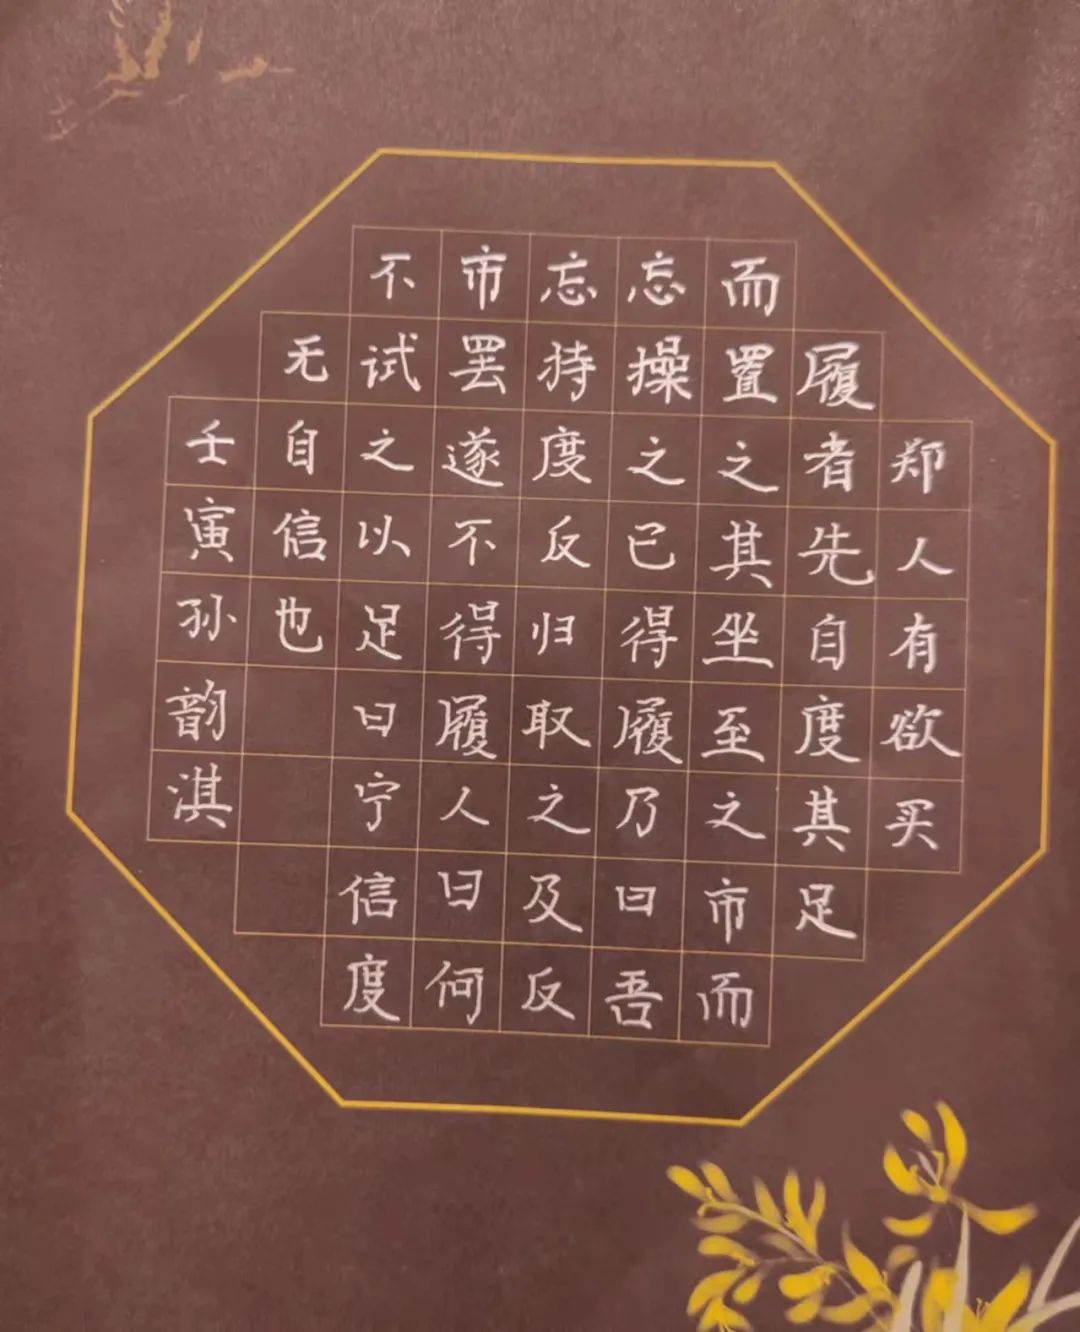 郑人有欲买
履者先自度其足
而置之其坐至之市而
忘操之已得履乃曰吾
忘持度反归取之及反
市罢遂不得履人曰何
不试之以足曰宁信度
无自信也
壬寅孙韵淇